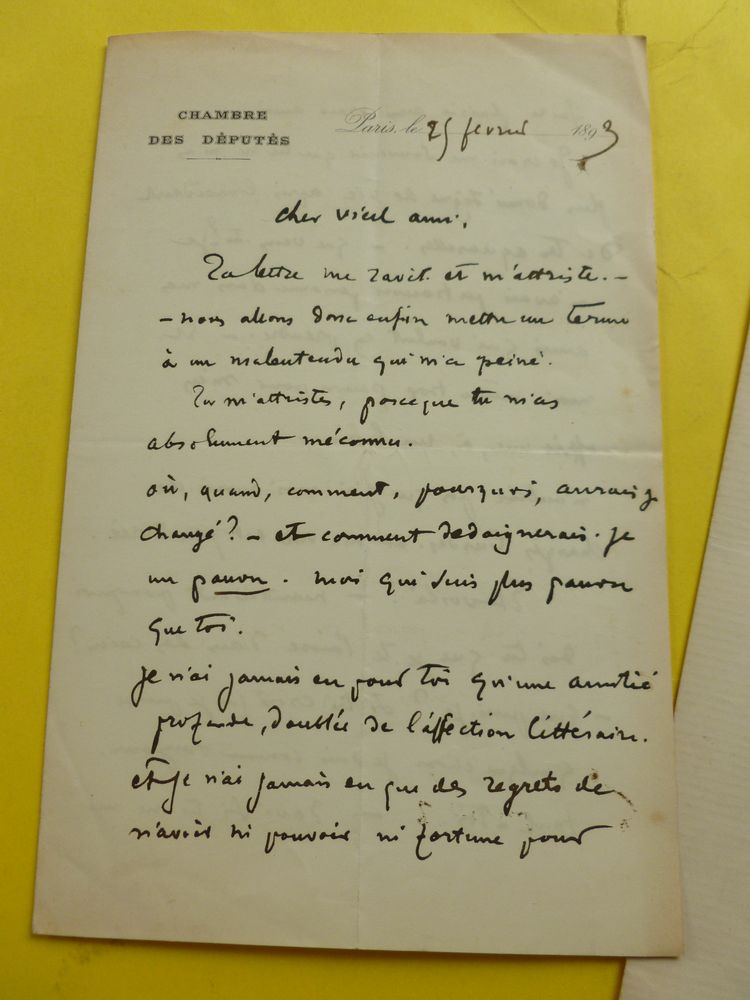 CHAMBRE
DES DÉPUTÉS
Paris, le 25 fevrier 1893
cher vieil ami,
Ta lettre me ravit et m'attriste. -
- nous allons donc enfin mettre un terme
à un malentendu qui m'a peiné.
Tu m'attristes, parceque tu m'as
absolument méconnu.
où, quand, comment, pourquoi, aurais je
changé? - et comment dedaignerais-je
un pauvre. moi qui suis plus pauvre
que toi.
je n'ai jamais eu pour toi qu'une amitié
profonde, doublée de l'affection littéraire.
et je n'ai jamais eu que des regrets de
n'avoir ni pouvoir ni fortune pour